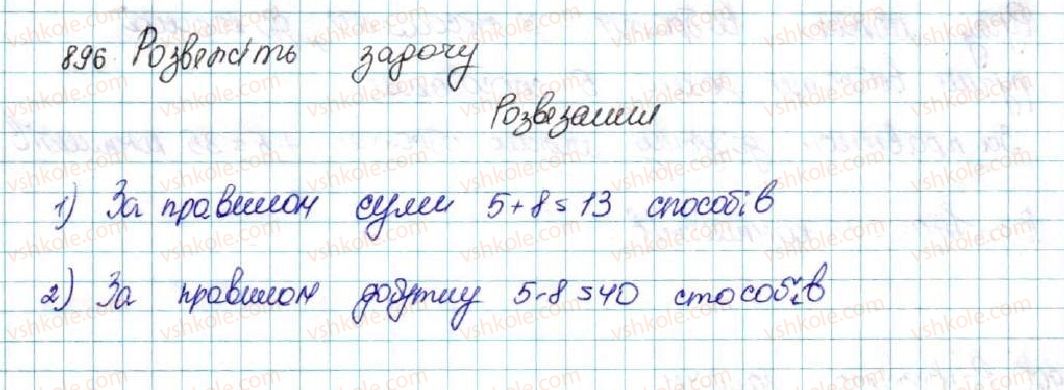 896 Розвежіть задачу
Розвезання
1) За правилом суми 5+8=13 способів
2) За правилом добутку 5·8=40 способів